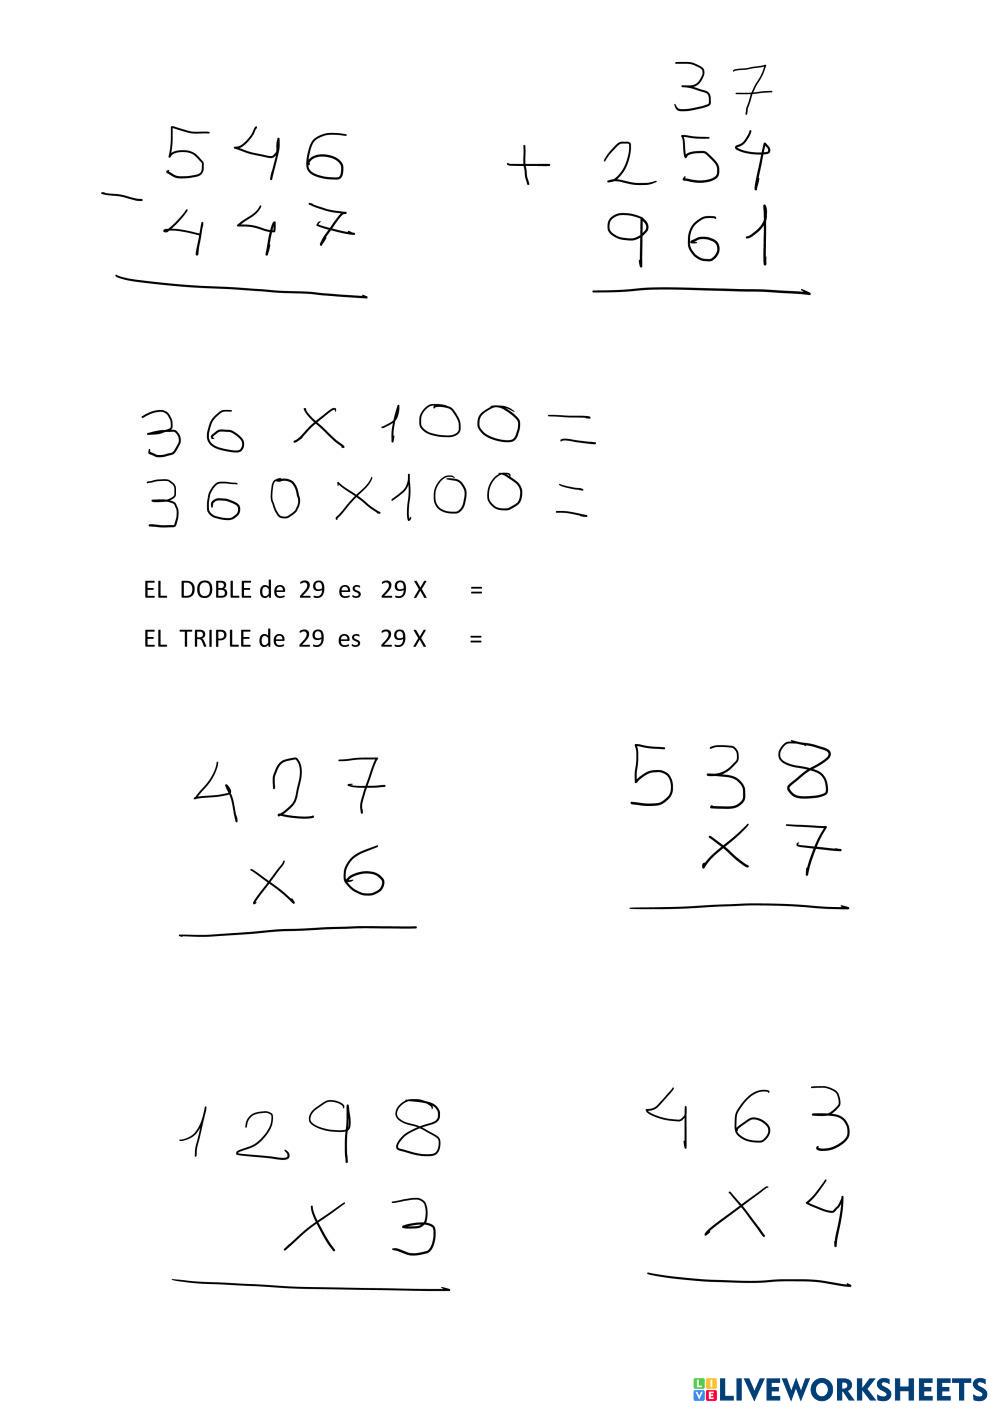 546
- 447
37
+ 254
961
36 X 100 =
360 X 100 =
EL DOBLE de 29 es 29 X =
EL TRIPLE de 29 es 29 X =
427
x 6
538
x 7
1298
x 3
463
x 4
LIVE LIVEWORKSHEETS